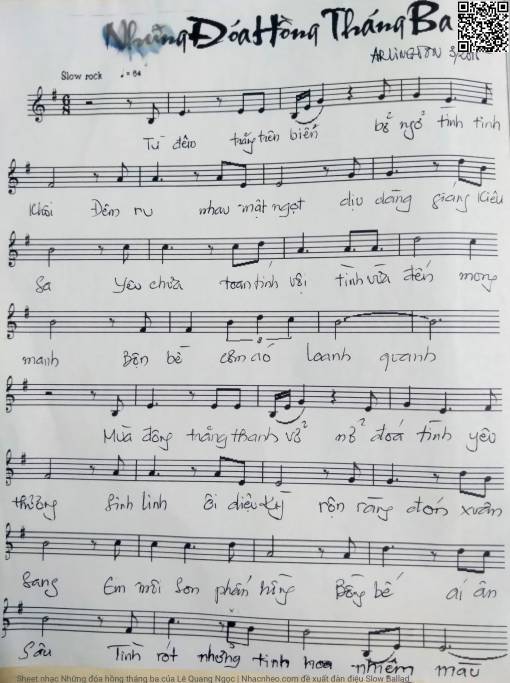 Những Đóa Hồng Tháng Ba
ARLINGTON 3/2011
Slow rock ♩. = 64
Từ đêm trăng trên biển bỡ ngỡ tình tinh
Khôi Đêm ru nhau mật ngọt dịu dàng giáng Kiều
Sa Yêu chưa toan tính vội tình vừa đến mong
manh Bộn bề cơm áo loanh quanh
Mùa đông trăng thanh vỡ nở đoá tình yêu
thương Sinh linh ôi diệu kỳ rộn ràng đón xuân
Sang Em môi son phấn hồng Bồng bế ái ân
Sâu Tình rót những tinh hoa nhiệm màu
Sheet nhạc Những đóa hồng tháng ba của Lê Quang Ngọc | Nhacnheo.com đề xuất đàn điệu Slow Ballad